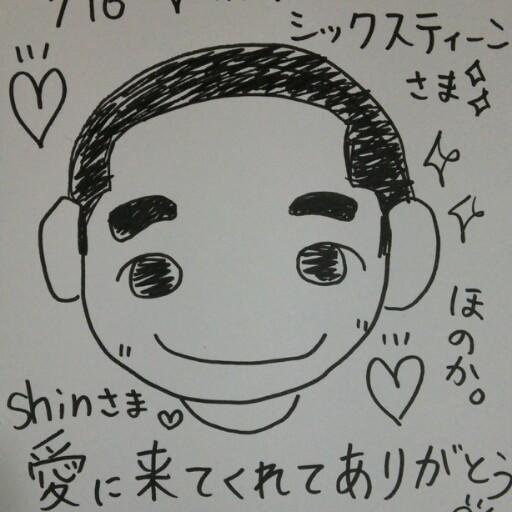 7/16
シックスティーン
さま
ほのか。
shinさま
愛に来てくれてありがとう